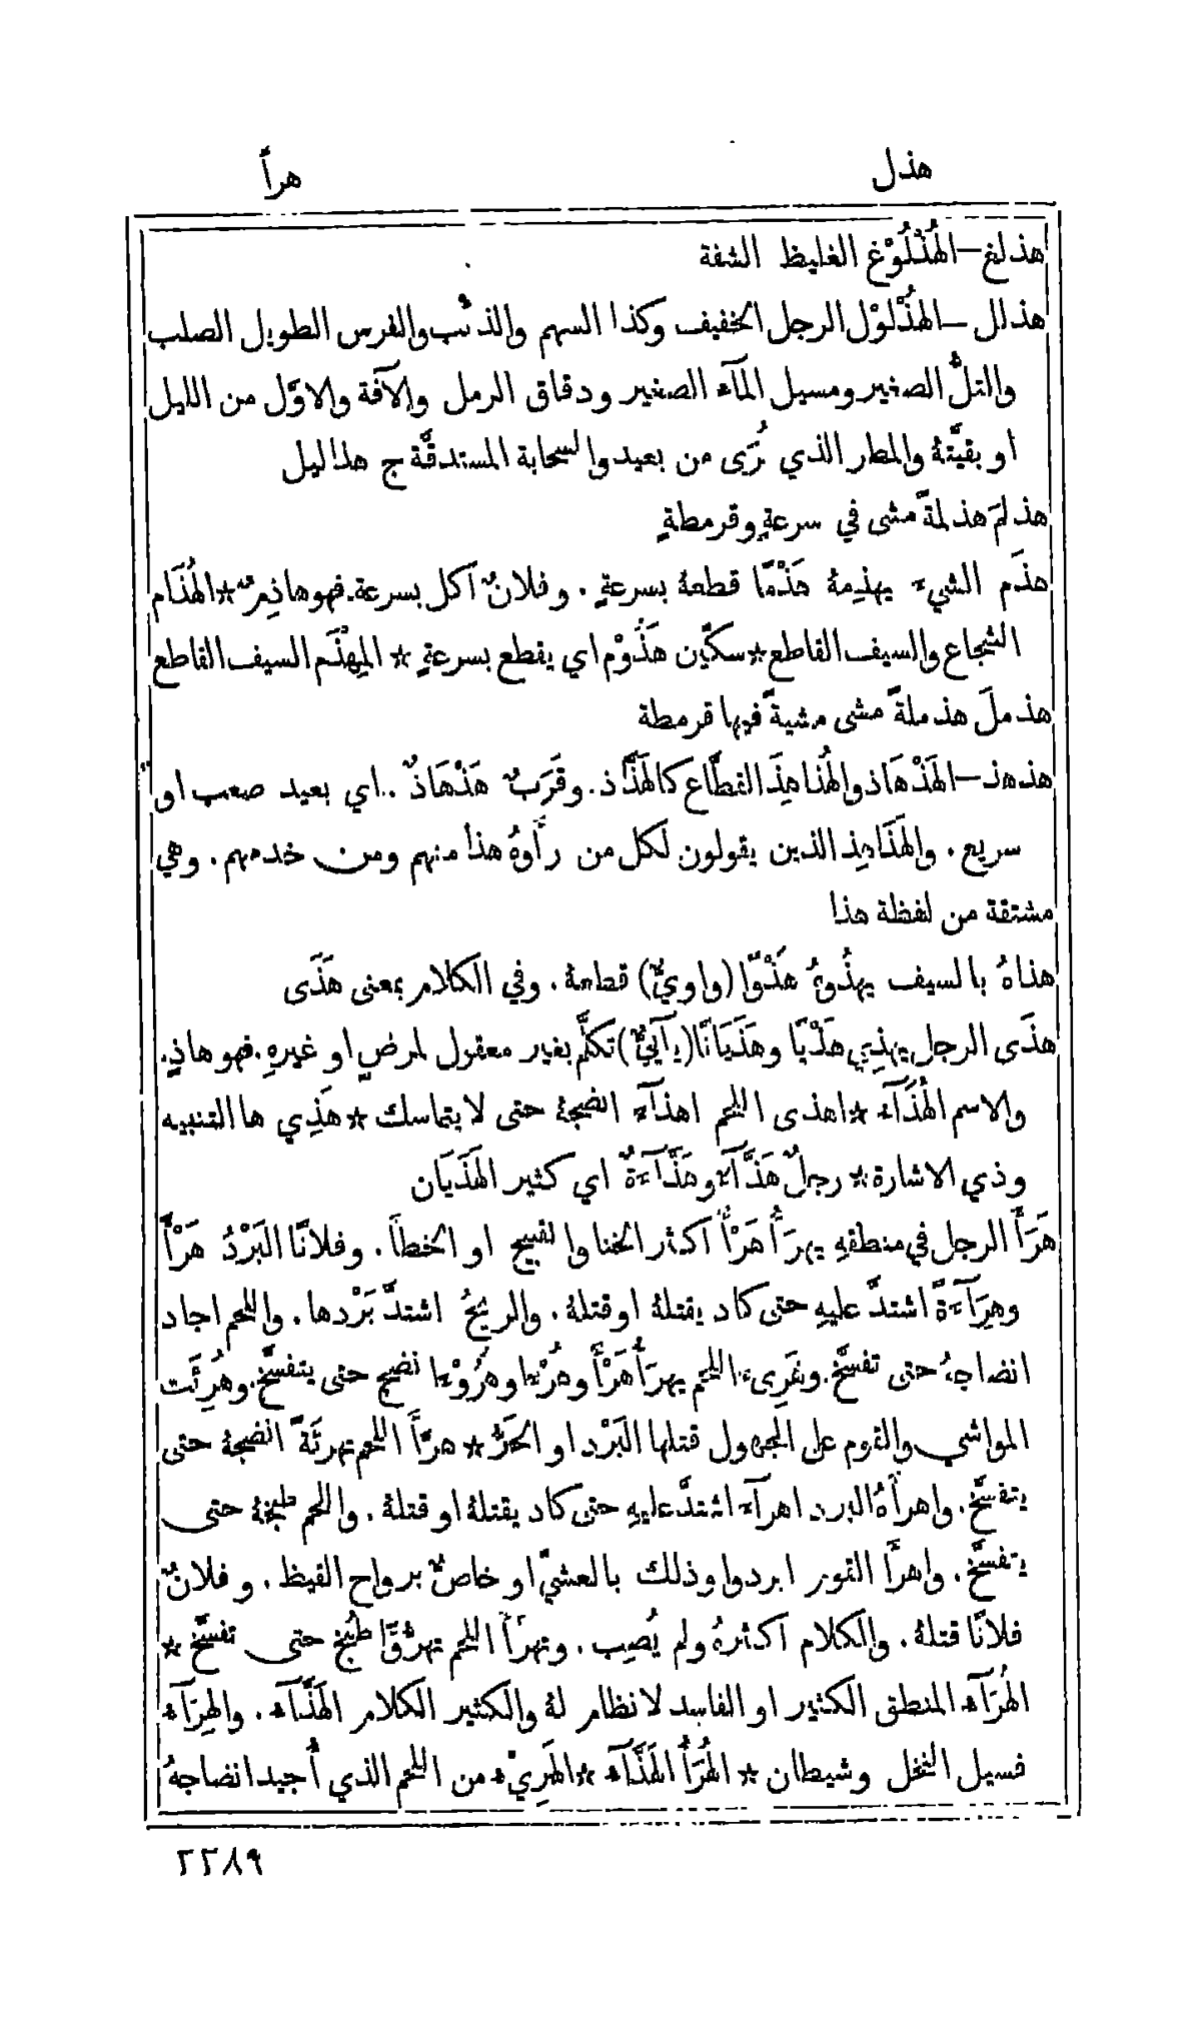 هذل
هرأ
هذلغ — الهُذْلُوْغ الغليظ الشفة
هذلل — الهُذْلوْل الرجل الخفيف وكذا السهم والذئب والفرس الطويل الصلب
والتلُّ الصغير ومسيل المآء الصغير ودقاق الرمل والآفة والاوَّل من الليل
او بقيَّتهُ والمطر الذي يُرَى من بعيد والسحابة المستدقَّة ج هذاليل
هذلمَ هذلمةً مشى في سرعةٍ وقرمطةٍ
هذَم الشيءَ يهذِمهُ هَذْمًا قطعهُ بسرعةٍ . وفلانٌ اكل بسرعة. فهو هاذِمٌ * الهُذَام
الشجاع والسيف القاطع * سكّين هَذُوْم اي يقطع بسرعةٍ * المِهْذَم السيف القاطع
هذملَ هذملةً مشى مشيةً فيها قرمطة
هذهذ — الهَذْهَاذ والهُذاهِذَ القطَّاع كالهَذَّاذ . وقَرَبٌ هَذْهَاذٌ .. اي بعيد صعب او
سريع . والهَذَاهِذ الذين يقولون لكل من رأَوهُ هذا منهم ومن خدمهم . وهي
مشتقة من لفظة هذا
هذاهُ بالسيف يهذُوهُ هَذْوًا (واويٌّ) قطعهُ . وفي الكلام بمعنى هَذَى
هذَى الرجل يهذِي هَذْيًا وهَذَيَانًا (يآئيٌّ) تكلَّم بغير معقول لمرضٍ او غيرهِ. فهو هاذٍ.
والاسم الهُذَآء * اهذى اللحم اهذآءً انضجهُ حتى لا يتماسك * هَذِي ها التنبيه
وذي الاشارة * رجلٌ هَذَّآء وهَذَّآءَةٌ اي كثير الهَذَيَان
هَرَأَ الرجل في منطقهِ يهرَأُ هَرْأً اكثر الخنا والقبيح او الخطأَ . وفلانًا البَرْدُ هَرْأً
وهِرَآءَةً اشتدَّ عليهِ حتى كاد يقتلهُ او قتلهُ . والريحُ اشتدَّ بَرْدها . واللحم اجاد
انضاجهُ حتى تفسَّخ. وهَرِىءَ اللحم يهرَأُ هَرْأً وهُرْءًا وهُرُوْءًا نضج حتى يتفسَّخ. وهُرِئَت
المواشي والقوم على المجهول قتلها البَرْد او الحَرُّ * هرَّأَ اللحم تهرئَةً انضجهُ حتى
يتفسَّخ. واهرأَهُ البرد اهرآءً اشتدَّ عليهِ حتى كاد يقتلهُ او قتلهُ . واللحم طبخهُ حتى
يتفسَّخ . واهرأَ القوم ابردوا وذلك بالعشيّ او خاصٌّ برواح القيظ . وفلانٌ
فلانًا قتلهُ . والكلام اكثرهُ ولم يُصِب . وتهرَّأَ اللحم تهرُّؤًا طُبِخ حتى تفسَّخ *
الهُرَآء المنطق الكثير او الفاسد لا نظام لهُ والكثير الكلام الهَذَّآء . والهِرَآء
فسيل النخل وشيطان * الهُرَأُ الهَذَّآء * الهَرِيْء من اللحم الذي أُجيد انضاجهُ
٢٢٨٩